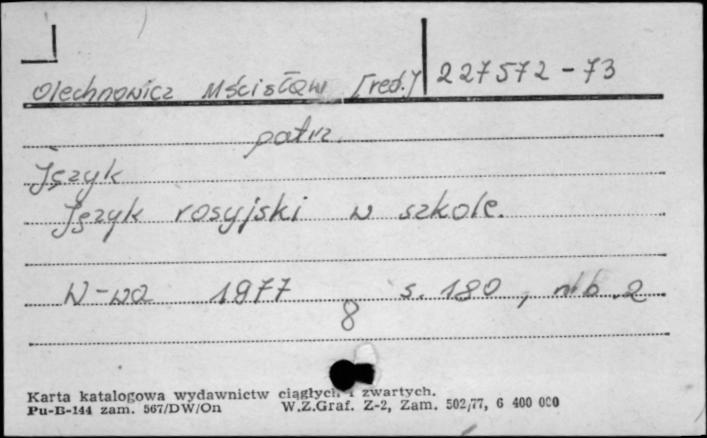 Olechnowicz Mścisław [red.] 227572-73
patrz
Język
Język rosyjski w szkole.
W-wa 1977 s. 180, nlb. 2
8
Karta katalogowa wydawnictw ciągłych i zwartych.
Pu-B-144 zam. 567/DW/On W.Z.Graf. Z-2, Zam. 502/77, 6 400 000